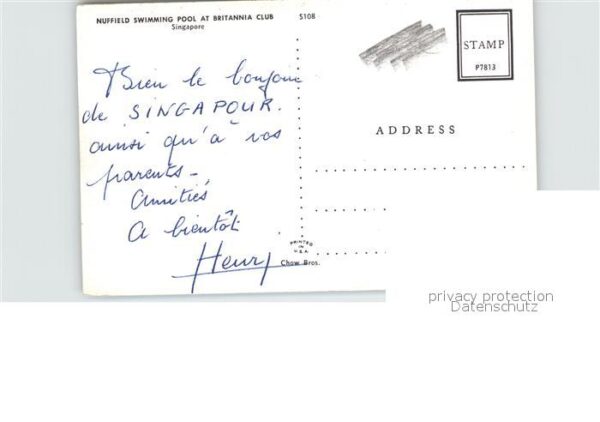 NUFFIELD SWIMMING POOL AT BRITANNIA CLUB
Singapore
S108
Bien le bonjour
de SINGAPOUR.
ainsi qu'à vos
parents -
Amitiés
A bientôt
Henry
STAMP
P7813
ADDRESS
PRINTED
IN
U.S.A.
Chow Bros.
privacy protection
Datenschutz